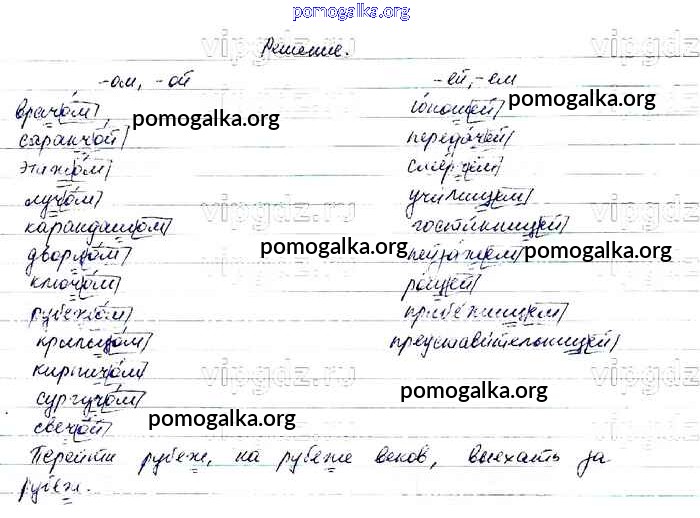 pomogalka.org
Решение.
-ом, -ой -ей, -ем
врачом, юношей
саранчой передачей
этажом смерчем
лучом училищем
карандашом гостиницей
дворцом пейзажем
ключом рощей
рубежом прибежищем
крыльцом представительницей
кирпичом
сургучом
свечой
Перейти рубеж, на рубеже веков, выехать за
рубеж.
pomogalka.org
pomogalka.org
pomogalka.org
pomogalka.org
pomogalka.org
pomogalka.org
vipgdz.ru
vipgdz.ru
vipgdz.ru